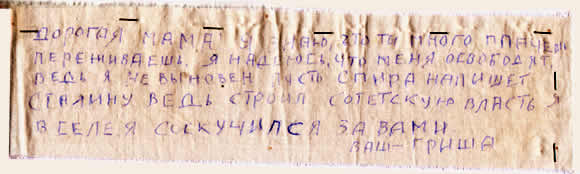 ДОРОГАЯ МАМА Я ЗНАЮ, ЭТО ТЫ МНОГО ПЛАЧЕШ
ПЕРЕЖИВАЕШЬ. Я НАДЕЮСЬ, ЧТО МЕНЯ ОСВОБОДЯТ,
ВЕДЬ Я НЕ ВЫНОВЕН ПУСТЬ СПИРА НАПИШЕТ
СТАЛИНУ ВЕДЬ СТРОИЛ СОТЕТСКУЮ ВЛАСТЬ Я
ВСЕЛЕЯ СОСКУЧИЛСЯ ЗА ВАМИ
ВАШ- ГРИША